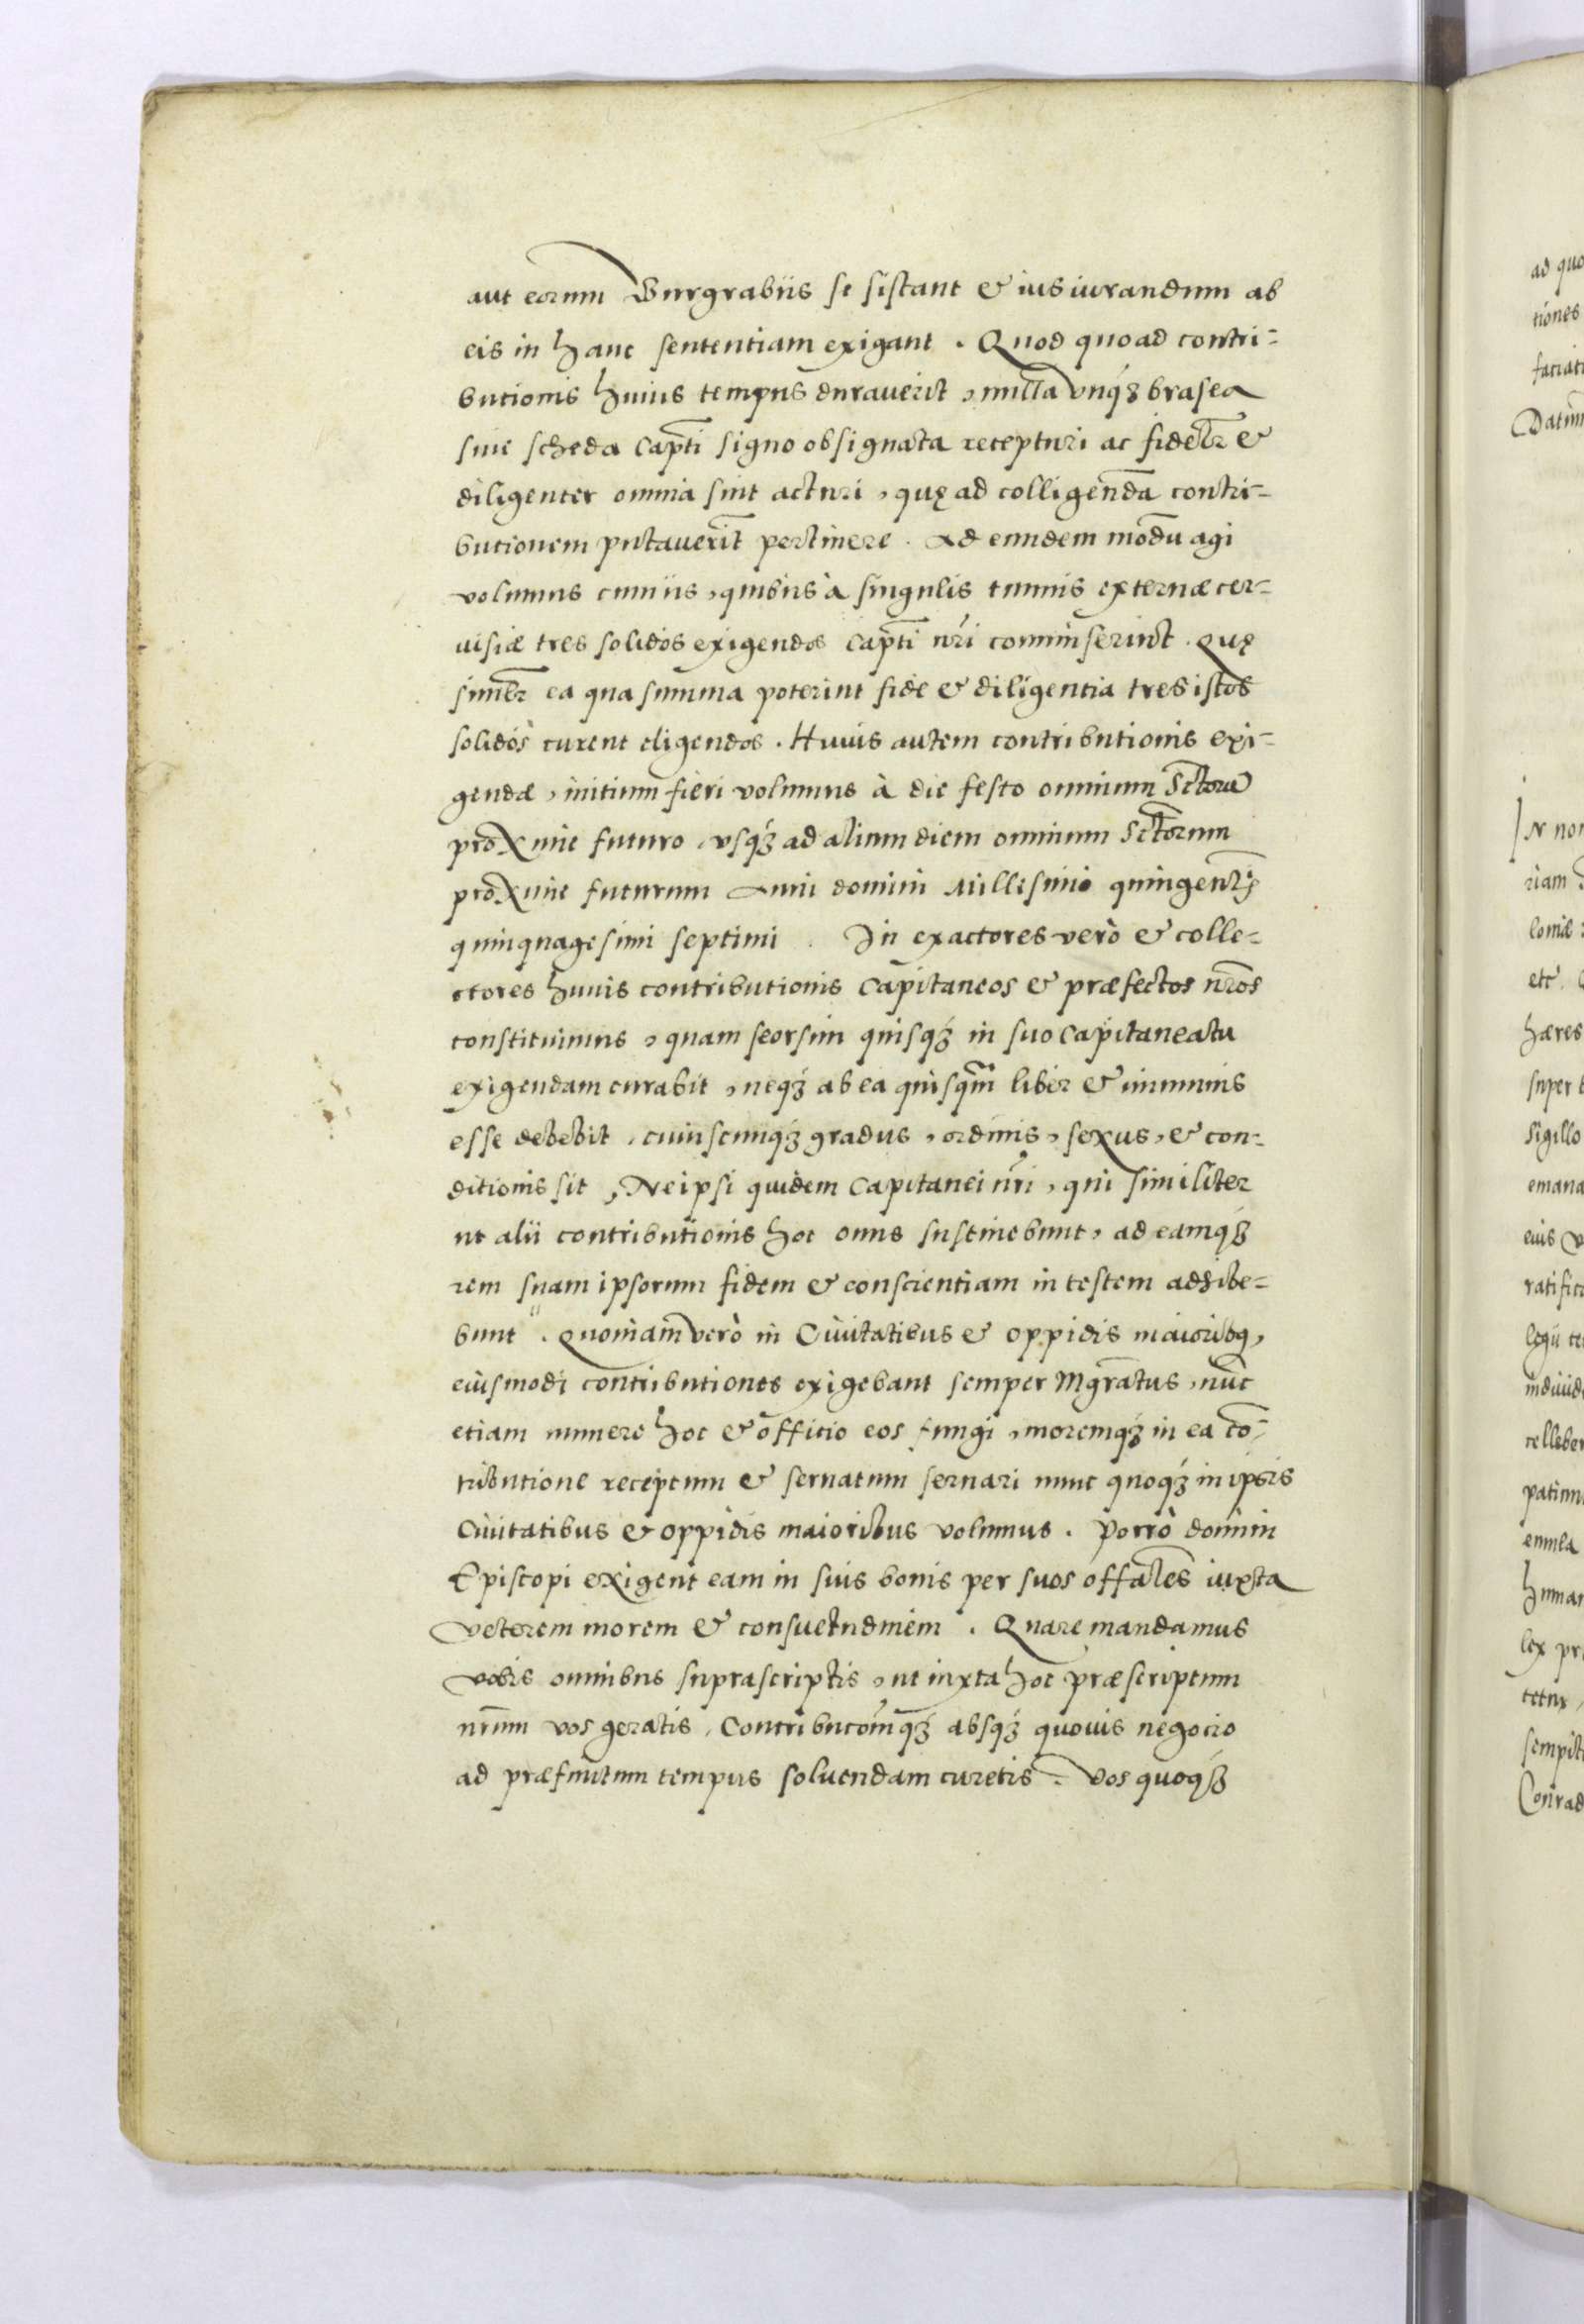 aut eorum Burgrabiis se sistant & ius iurandum ab
eis in hanc sententiam exigant . Quod quoad contri=
butionis huius tempus durauerit , nulla vnq́ȝ brasea
siue scheda Capti signo obsignata recepturi ac fidelr &
diligenter omnia sint acturi , quę ad colligendā contri=
butionem putauerit pertinere . Ad eundem modū agi
volumus cum iis , quibus à singulis tunnis externæ cer=
uisiæ tres solidos exigendos Capti nri commiserint . Quę
similr ea qua summa poterint fide & diligentia tres istos
solidos curent eligendos . Huius autem contributionis exi=
gendæ , initium fieri volumus à die festo omnium Sctorū
proxime futuro , vsq́ȝ ad alium diem omnium Sctorum
proxime futurum Anni domini Millesimi quingentę
quinquagesimi septimi . In exactores verò & colle=
ctores huius contributionis Capitaneos & præfectos nros
constituimus , quam seorsim quisq́ȝ in suo Capitaneatu
exigendam curabit , neq́ȝ ab ea quisqm̄ liber & immunis
esse debebit , cuiuscunq́ȝ gradus , ordinis , sexus , & con=
ditionis sit , Ne ipsi quidem Capitanei nri , qui similiter
ut alii contributionis hoc onus sustinebunt , ad eamq́ȝ
rem suam ipsorum fidem & conscientiam in testem adhibe=
bunt . Quoniam verò in Ciuitatibus & oppidis maioribq ,
eiusmodi contributiones exigebant semper Mgratus , nūc
etiam munere hoc & officio eos fungi , moremq́ȝ in ea cō=
tributione receptum & seruatum seruari nunc quoq́ȝ in ipsis
Ciuitatibus & oppidis maioribus volumus . Porrò domini
Episcopi exigent eam in suis bonis per suos offales iuxta
veterem morem & consuetudinem . Quare mandamus
vobis omnibus suprascriptis , ut iuxta hoc præscriptum
nrum vos geratis , Contribucomq́ȝ absq́ȝ quouis negocio
ad præfinitum tempus soluendam curetis . Vos quoq́ȝ
ad quo
tiones
faciati
Datum
In nom
riam
loniæ
etc .
hæres
super
sigillo
emana
eius
ratific
induid
patim
lex pr
sempit
Conrad